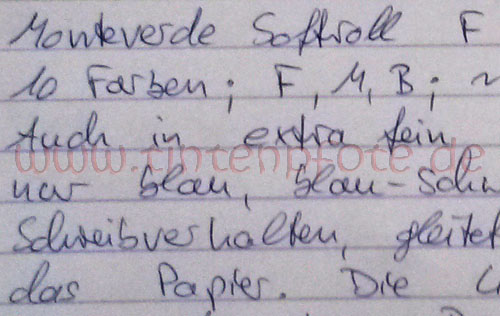 Monteverde Softroll F
10 Farben; F, M, B; ~
Auch in extra fein
www.tintenpfote.de
nur blau, blau-schw
Schreibverhalten, gleitet
das Papier. Die